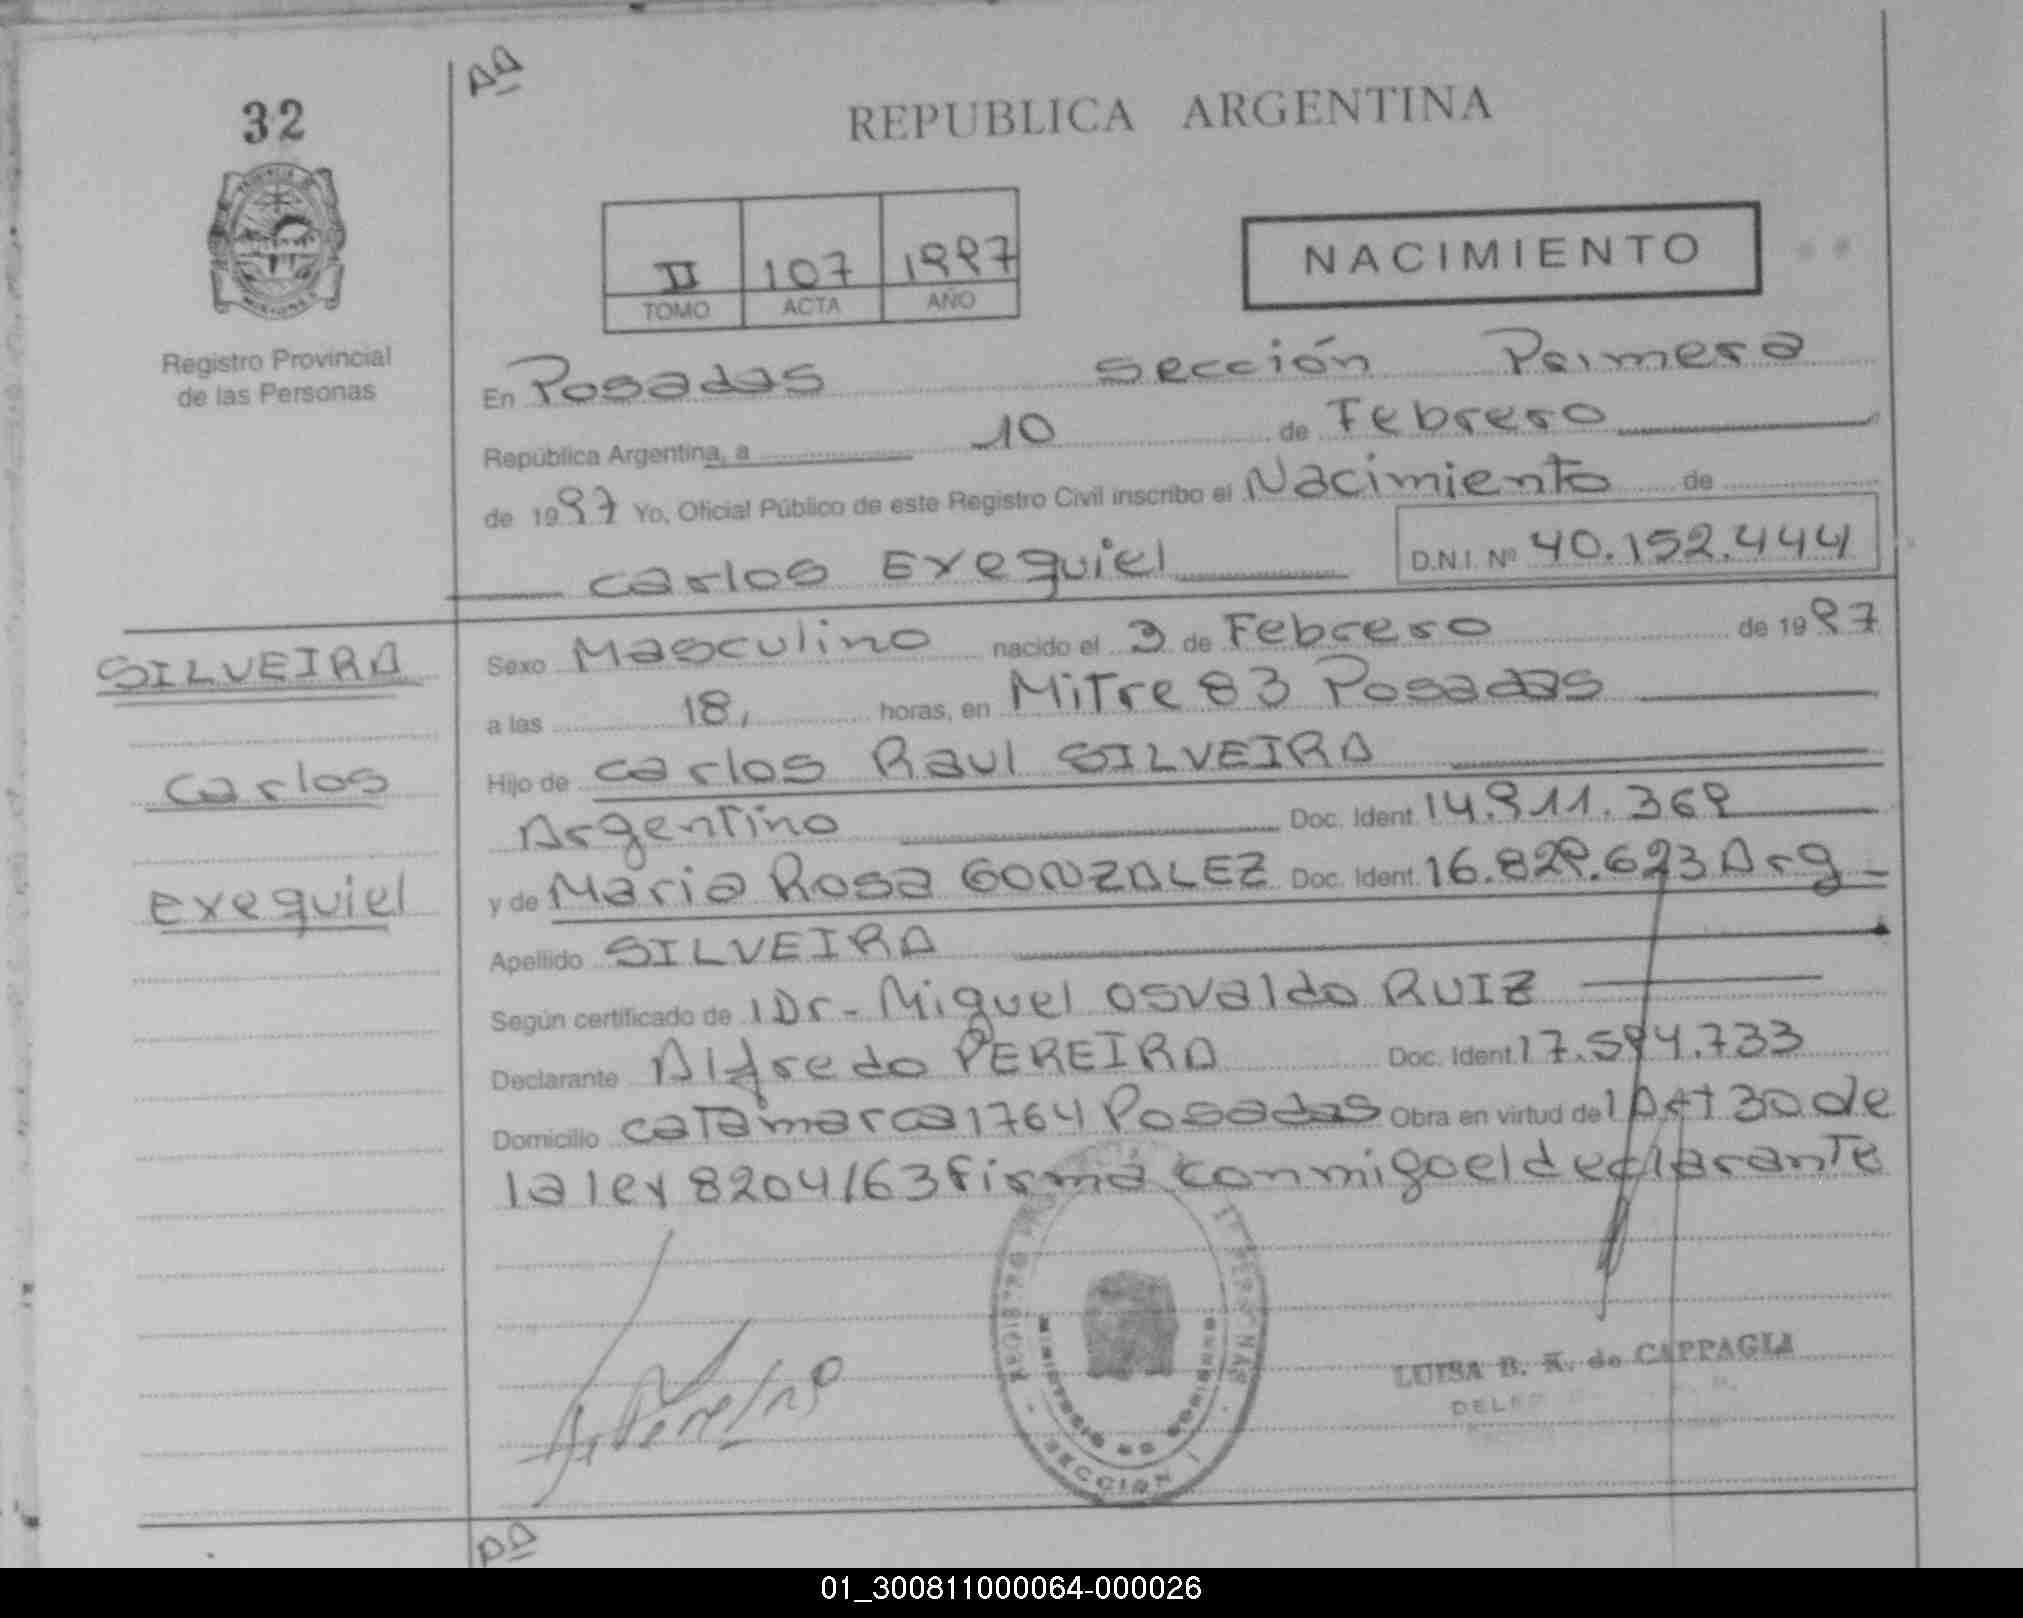 32
Aª
REPUBLICA ARGENTINA
II 107 1997
TOMO ACTA AÑO
NACIMIENTO
Registro Provincial
de las Personas
En Posadas sección Primera
República Argentina, a 10 de Febrero
de 1997 Yo, Oficial Público de este Registro Civil inscribo el Nacimiento de
Carlos Exequiel D.N.I. Nº 40.152.444
SILVEIRA
Carlos
exequiel
Sexo Masculino nacido el 3 de Febrero de 1997
a las 18, horas, en Mitre 83 Posadas
Hijo de Carlos Raul SILVEIRA
Argentino Doc. Ident. 14.911.369
y de Maria Rosa GONZALEZ Doc. Ident. 16.829.623 Arg
Apellido SILVEIRA
Según certificado de l Dr- Miguel Osvaldo RUIZ
Declarante Alfredo PEREIRA Doc. Ident. 17.594.733
Domicilio Catamarca 1764 Posadas Obra en virtud de l Art 30 de
la ley 8204/63 firma conmigo el declarante
MINISTERIO DE GOBIERNO
SECCION 1
LUISA B. K. de CAPPAGLI
01_300811000064-000026